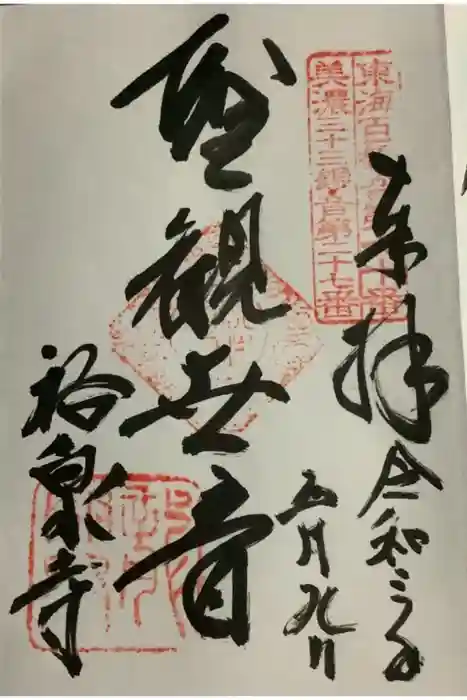 奉拝
令和三年
五月九日
東海百観音第六十番
美濃三十三観音第二十七番
聖観世音
裕泉寺